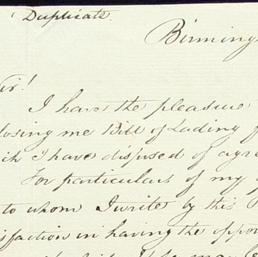 Duplicate
Birming
Sir!
I have the pleasure
losing me Bill of Lading f
ich I have disposed of agre
For particulars of my
to whom I write by this P
isfaction in having the oppo